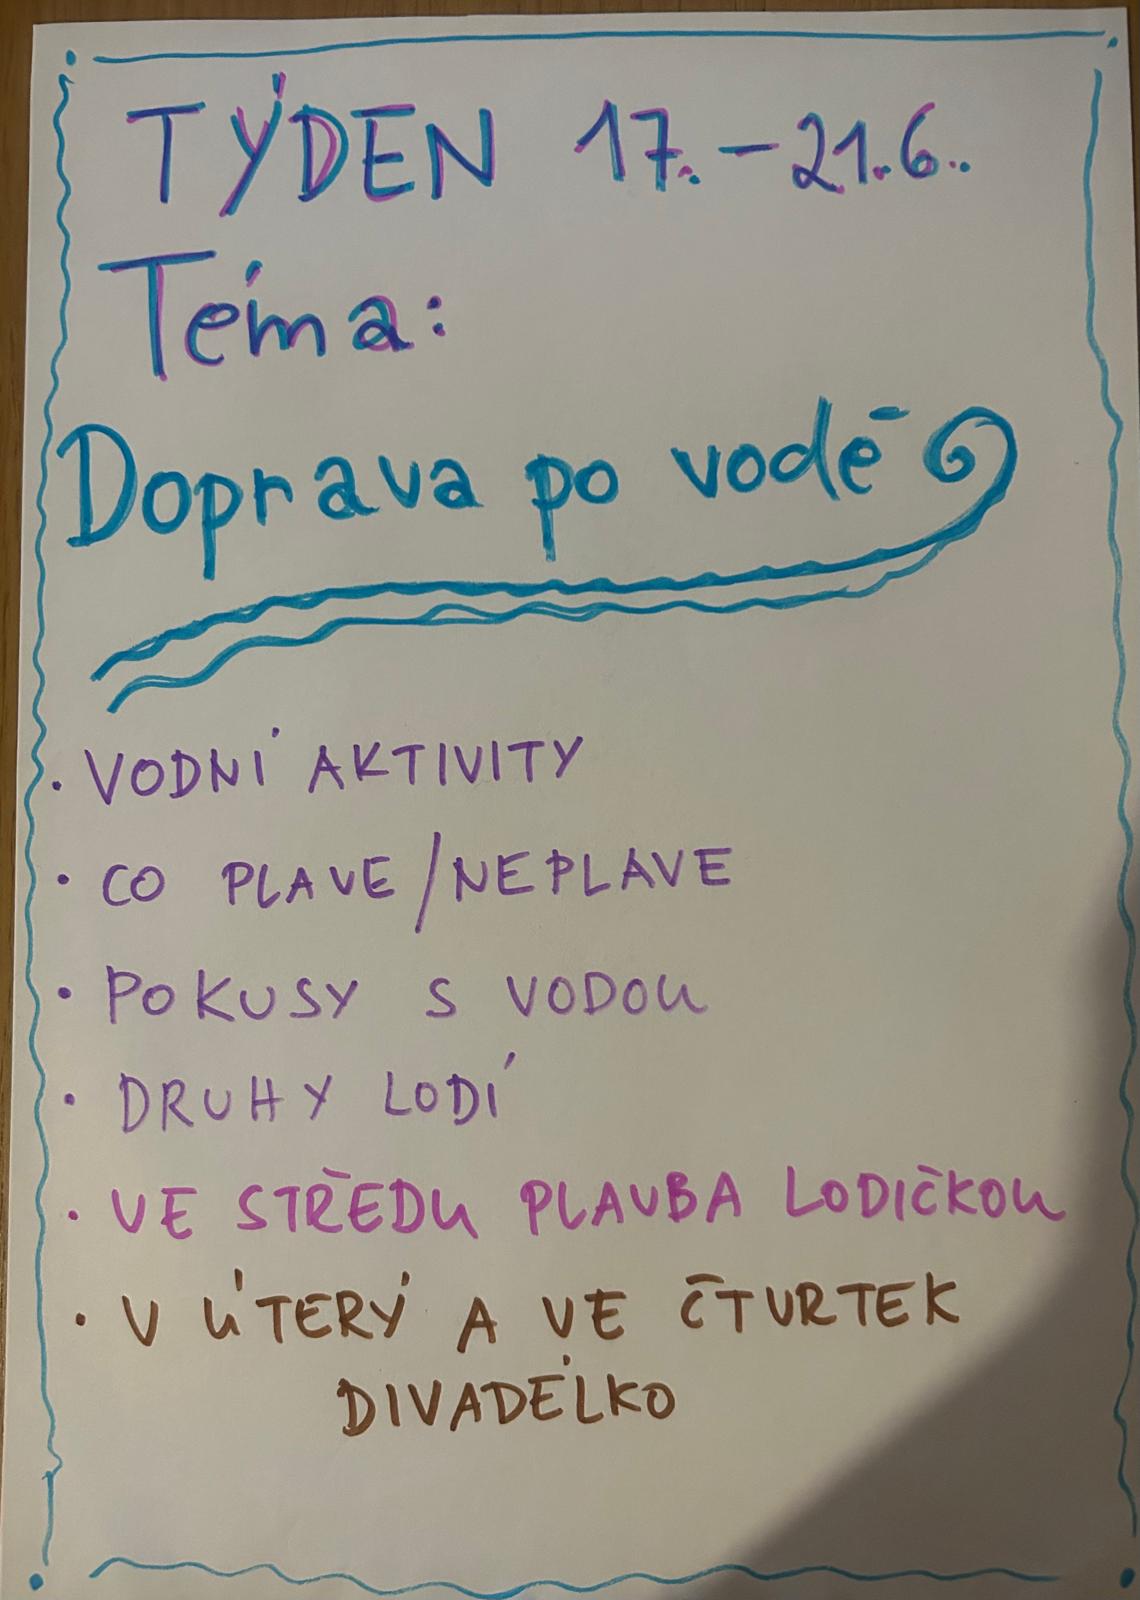 TÝDEN 17. - 21.6..
Téma:
Doprava po vodě
• VODNÍ AKTIVITY
• CO PLAVE/NEPLAVE
• POKUSY S VODOU
• DRUHY LODÍ
• VE STŘEDU PLAVBA LODIČKOU
• V ÚTERÝ A VE ČTVRTEK
DIVADÉLKO